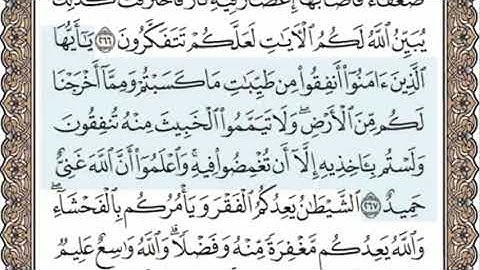 ضُعَفَآءُ فَأَصَابَهَآ إِعْصَارٌ فِيهِ نَارٌ فَٱحْتَرَقَتْ كَذَٰلِكَ
يُبَيِّنُ ٱللَّهُ لَكُمُ ٱلْأٓيَٰتِ لَعَلَّكُمْ تَتَفَكَّرُونَ ٢٦٦ يَٰٓأَيُّهَا
ٱلَّذِينَ ءَامَنُوٓا۟ أَنفِقُوا۟ مِن طَيِّبَٰتِ مَا كَسَبْتُمْ وَمِمَّآ أَخْرَجْنَا
لَكُم مِّنَ ٱلْأَرْضِ ۖ وَلَا تَيَمَّمُوا۟ ٱلْخَبِيثَ مِنْهُ تُنفِقُونَ
وَلَسْتُم بِـَٔاخِذِيهِ إِلَّآ أَن تُغْمِضُوا۟ فِيهِ ۚ وَٱعْلَمُوٓا۟ أَنَّ ٱللَّهَ غَنِىٌّ
حَمِيدٌ ٢٦٧ ٱلشَّيْطَٰنُ يَعِدُكُمُ ٱلْفَقْرَ وَيَأْمُرُكُم بِٱلْفَحْشَآءِ ۖ
وَٱللَّهُ يَعِدُكُم مَّغْفِرَةً مِّنْهُ وَفَضْلًا ۗ وَٱللَّهُ وَٰسِعٌ عَلِيمٌ